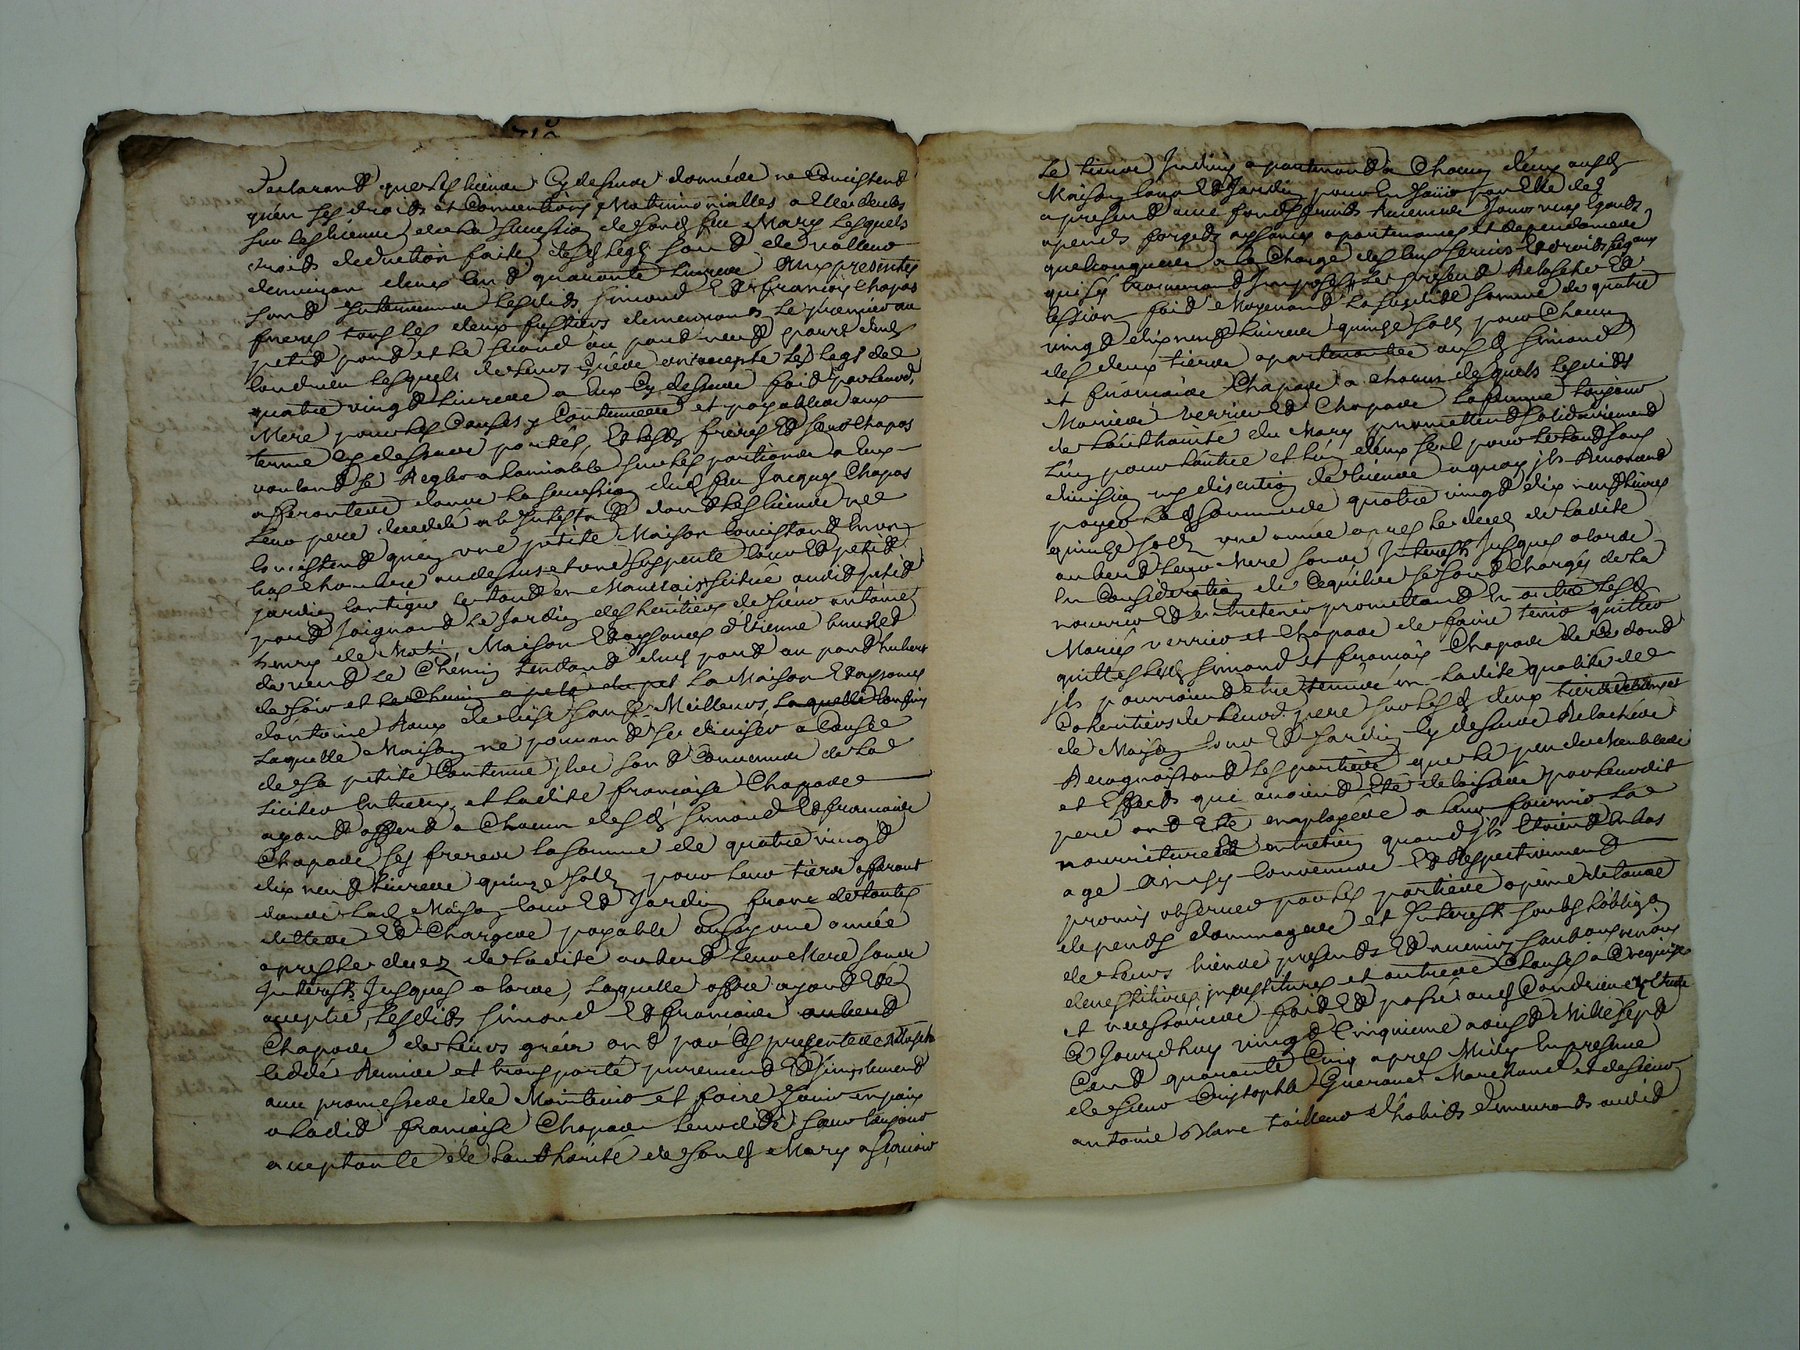 Declarand que les biens cy dessus donnés ne Concistend
qu'en ses droits et Conventions Matrimonialles a Elle deubs
sur les biens de la sucession de sond feu Mary lesquels
droits deduction faite desd legs sont de valleur
d'environ deux Cent quarante Livres aux presentes
sont Intervenus lesdits Simond Et françois Chapas
freres tous les deux demeurants le premier au
petit pond et le second au pond
Condrieu lesquels de leurs grés ont accepté les legs de
quatre vingt Livres a Eux Cy dessus fait par leurd
Mere pour les Causes y Contenues et payables aux
terme cy dessus portés, Et lesd freres Et sœur Chapas
vouland se Regler a lamiable sur les portions a Eux
afferantes dans la sucession dud feu Jacques Chapas
leur pere decedé ab Intestat dont les biens ne
Concistend qu'en une petite Maison Concistand En un
bas chambre au dessus et une souspente cour Et petit
jardin Contigus le tout en Mauvais situé audit petit
pond Joignand Le Jardin des heritiers de sieur antoine
henry de Matin, Maison Et aysances d'Etienne
de vend Le Chemin tendand dud pond au pond hubert
de soir et la Maison Et aysances
d'antoine Roux de bise
Laquelle Maison ne pouvand se diviser a Cause
de sa petite Contenue ils sont Convenus de la
liciter Entreux, et ladite françoise Chapas
ayand offerd a Chacun desd Simond Et françois
Chapas ses freres la somme de quatre vingt
dix neuf Livres quinze sols pour leur tiers afferant
dans lad Maison cour Et Jardin franc de toutes
dettes Et Charges payable aussy une année
apres le decez de ladite aubert leur Mere sans
Interests Jusques a lors, Laquelle offre ayand Eté
acceptée, Lesdits Simond Et françois
Chapas de leurs grés ont par Ces presentes Relasché
cedé Remis et transporté purement Et simplement
avec promesses de Maintenir et faire Jouir en paix
a ladit françoise Chapas leurdite sœur toujours
acceptante de l'authorité de sond Mary
Le tiers Indivis apartenand a Chacun d'eux auxd
Maison Cour Et Jardin pour En Jouir par Elle des
a present avec fonds fruits Revenus Jours vues Egouts
apends aysances apartenances et dependances
quelconques a la Charge des Cens servis Et droits
qui sy trouverond Imposés Les presend Relasche Et
cession fait Moyenand la susdite somme de quatre
vingt dix neuf Livres quinze sols pour Chacun
des deux tiers apartenants auxd Simond
et françois Chapas a chacun desquels lesdits
Mariés verrier Et Chapas la femme toujours
de l'authorité du Mary promettend solidairement
L'un pour l'autre et L'un d'eux seul pour le tout sans
division ny discution de biens a quoy ils Renoncend
payer lad somme de quatre vingt dix neuf Livres
quinze sols une année apres le deces de ladite
aubert leur Mere sans Interests Jusques a lors
En Consideration de Cequ'elle se sont Chargés de la
nourrir Et entretenir promettand En outre lesd
Mariés verrier et Chapas de faire tenir quittes
quittes lesd Simond et françois Chapas de Ce dont
ils pouroient etre tenus en ladite qualité de
Coheritiers de leurd pere sur lesd deux tiers
de Maison Cour Et Jardin Cy dessus Relachés
Recognoissand les parties que le peu de Meubles
et Effects qui avoient Eté delaissés par leurdit
pere ont Eté employés a leur fournir la
nourriture Et entretien quand ils Etoient En bas
age ainsy Convenus Et Respectivement
promis observer par les parties a peine de tous
depends dommages et Interests sous l'obligaon
de leurs biens presents Et avenirs
et autres Clauses a Ce requises
et necessaires fait Et passé aud Condrieu
Ce Jourdhuy vingt Cinquieme aoust Mille sept
Cent quarante Cinq apres Midy En presence
de sieur Christophle Guerouet Marchand et de sieur
antoine Blanc tailleur d'habits demeurants audit